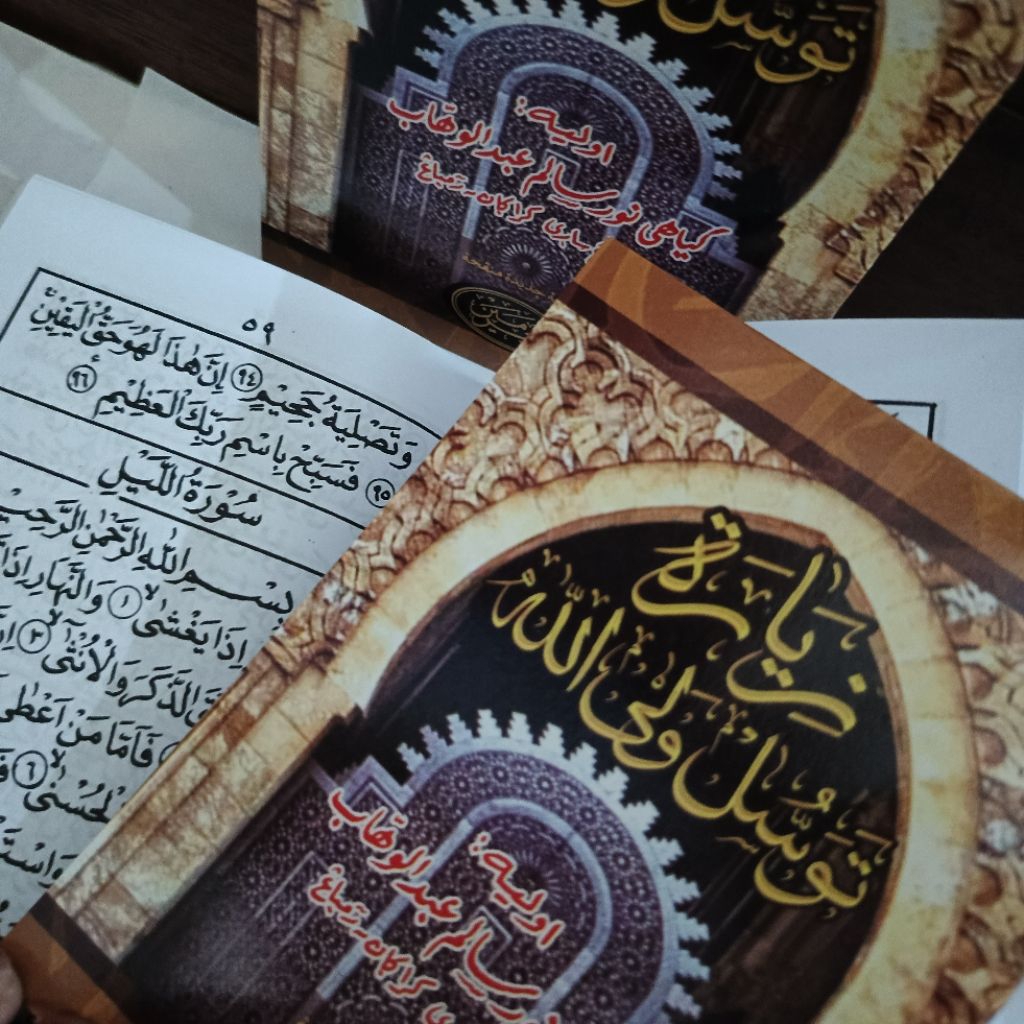 توسل
اوليه:
كياهي نور سالم عبد الوهاب
ساري كراكان - رمباغ
٥٩
وَتَصْلِيَةُ جَحِيْمٍ ٩٤ اِنَّ هٰذَا لَهُوَ حَقُّ الْيَقِيْنِ
٩٥ فَسَبِّحْ بِاسْمِ رَبِّكَ الْعَظِيْمِ ٩٦
سُوْرَةُ اللَّيْلِ
بِسْمِ اللهِ الرَّحْمٰنِ الرَّحِيْ
اِذَا يَغْشٰى ١ وَالنَّهَارِ اِذَا
الذَّكَرَ وَالْاُنْثٰى ٣ اِنَّ
فَاَمَّا مَنْ اَعْطٰى
لْحُسْنٰى ٦
وَاسْتَ
زِيَارَة
توَسُّل وَلِيُّ اللّٰه
اوليه:
سالم عبد الوهاب
كراكان - رمباغ